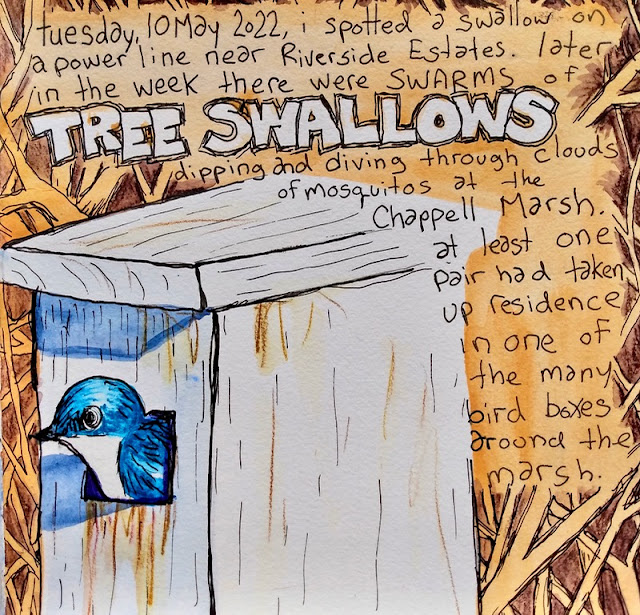 tuesday, 10 May 2022, i spotted a swallow on
a power line near Riverside Estates. later
in the week there were SWARMS of
TREE SWALLOWS
dipping and diving through clouds
of mosquitos at the
Chappell Marsh.
at least one
pair had taken
up residence
in one of
the many
bird boxes
around the
marsh.